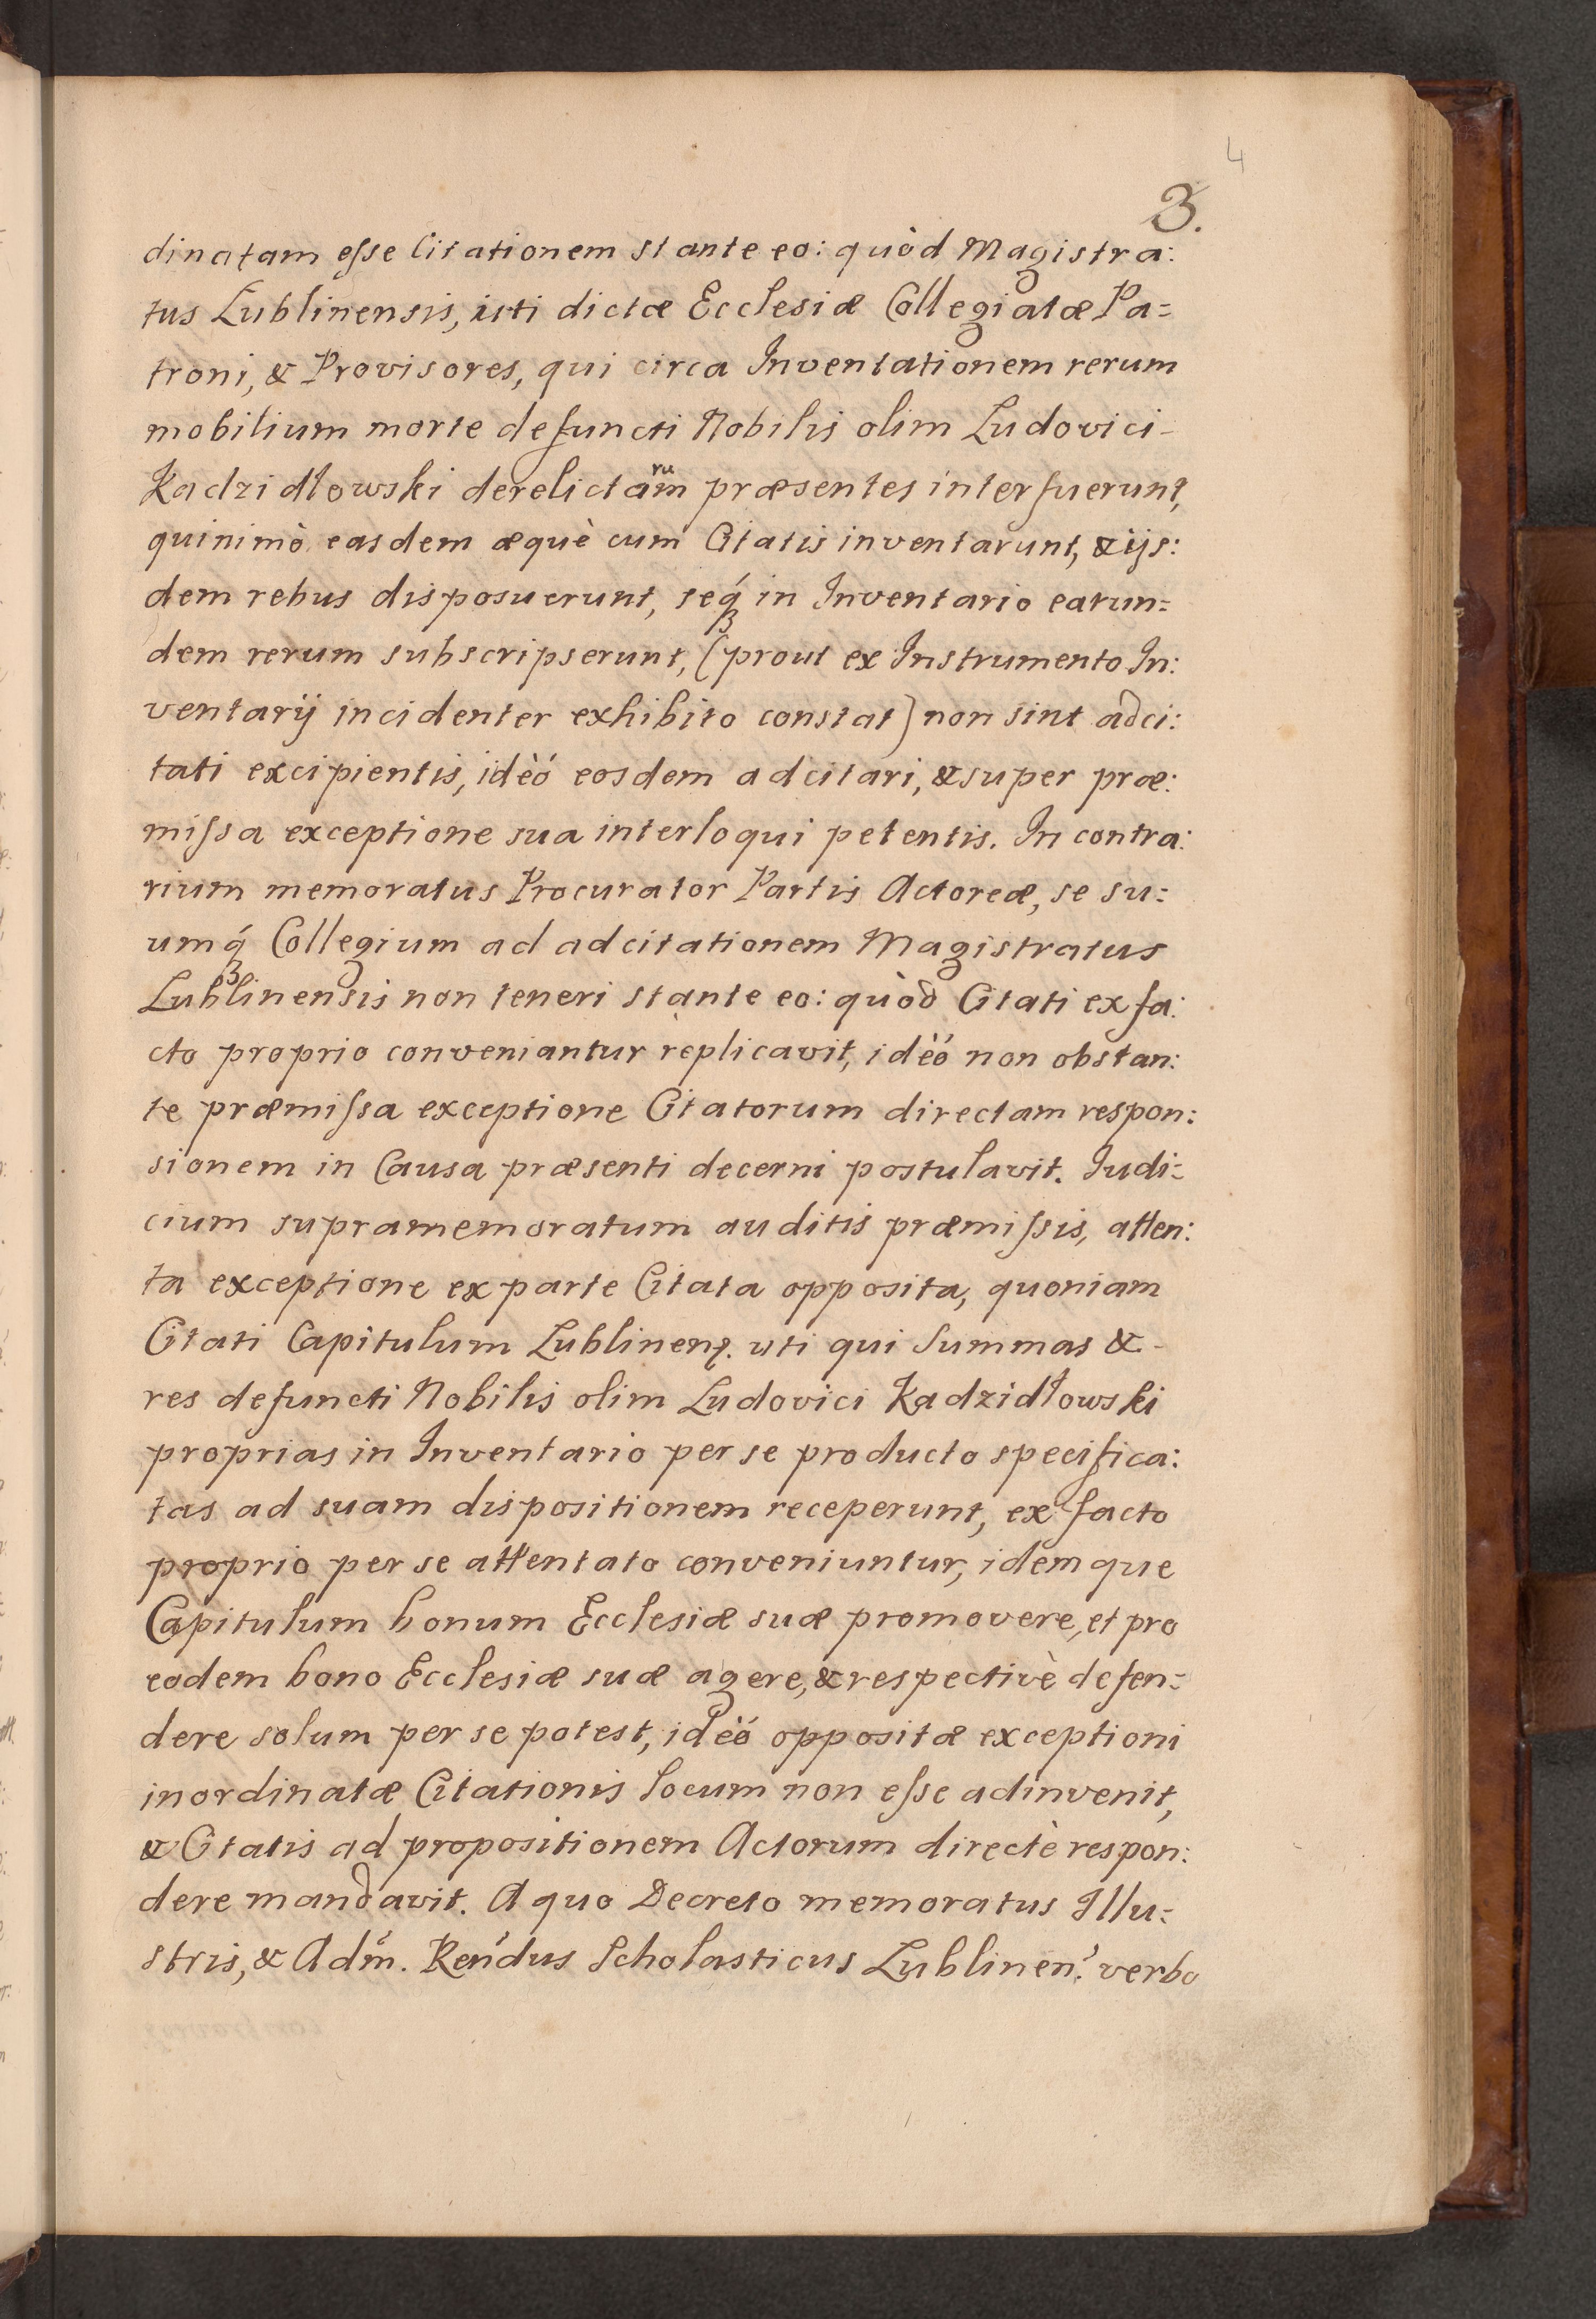 4
3.
dinatam esse Citationem stante eo: quòd Magistra:
tus Lublinensis, isti dictæ Ecclesiæ Collegiatæ Pa=
troni, & Provisores, qui circa Inventationem rerum
mobilium morte defuncti Nobilis olim Ludovici-
Kadzidłowski derelictarum præsentes interfuerunt,
quinimò easdem æquè cum Citatis inventarunt, & ijs:
dem rebus disposuerunt, seq́ʒ in Inventario earun=
dem rerum subscripserunt, (prout ex Instrumento In:
ventarij incidenter exhibito constat) non sint adci:
tati excipientis, idèó eosdem adcitari, & super præ:
missa exceptione sua interloqui petentis. In contra:
rium memoratus Procurator Partis Actoreæ, se su=
umq́ʒ Collegium ad adcitationem Magistratus
Lublinensis non teneri stante eo: quòd Citati ex fa:
cto proprio conveniantur replicavit, idèó non obstan:
te præmissa exceptione Citatorum directam respon:
sionem in Causa præsenti decerni postulavit. Iudi=
cium supramemoratum auditis præmissis, atten:
ta exceptione ex parte Citata opposita, quoniam
Citati Capitulum Lublinen. uti qui Summas & -
res defuncti Nobilis olim Ludovici Kadzidłowski
proprias in Inventario per se producto specifica:
tas ad suam dispositionem receperunt, ex facto
proprio per se attentato conveniuntur, idemque
Capitulum bonum Ecclesiæ suæ promovere, et pro
eodem bono Ecclesiæ suæ agere, & respectivè defen=
dere solum per se potest, idèó oppositæ exceptioni
inordinatæ Citationis locum non esse adinvenit,
& Citatis ad propositionem Actorum directè respon:
dere mandavit. A quo Decreto memoratus Illu=
stris, & Adḿ. Reńdus Scholasticus Lublineń. verbo